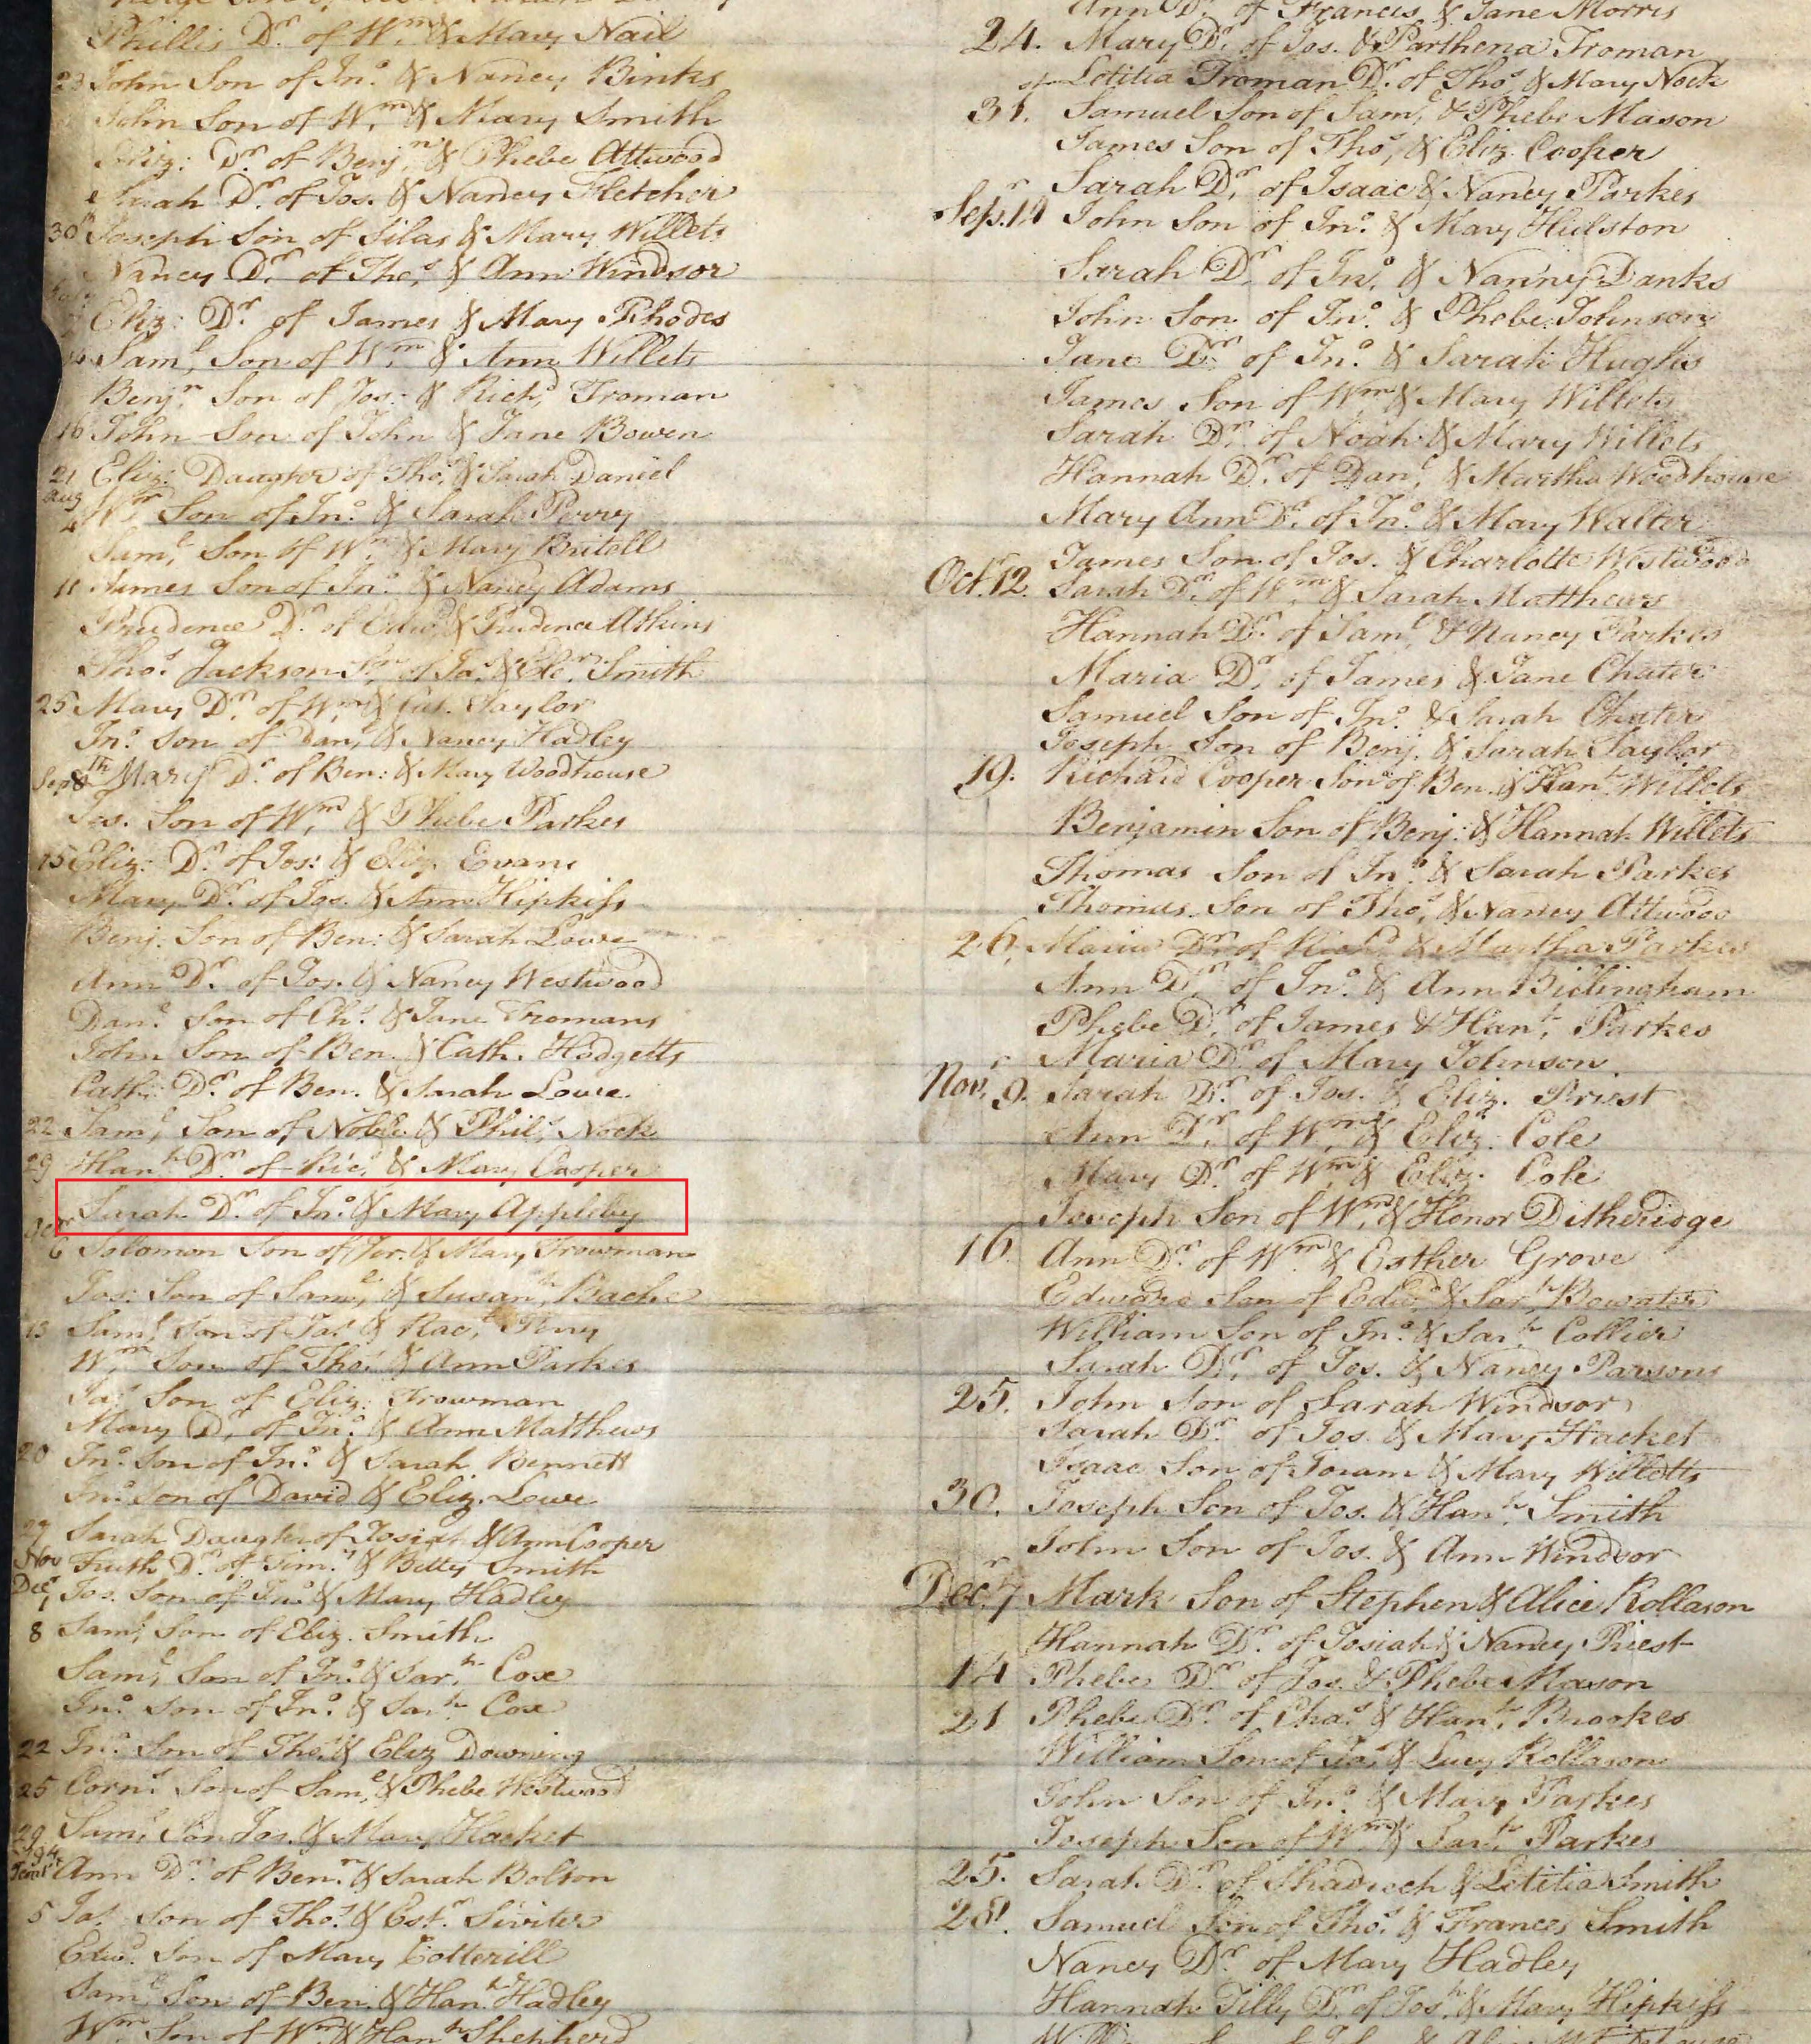 Phillis Dr. of Wm. & Mary Nail
23 John Son of Jno. & Nancy Binks
John Son of Wm. & Mary Smith
Eliz: Dr. of Benjn. & Phebe Attwood
Sarah Dr. of Jos. & Nancy Fletcher
30 Joseph Son of Silas & Mary Willets
Nancy Dr. of Thos. & Ann Windsor
Eliz: Dr. of James & Mary Rhodes
Saml. Son of Wm. & Ann Willets
Benjn. Son of Jos: & Richd. Troman
16 John Son of John & Jane Bowen
21 Eliz: Daughter of Thos. & Sarah Daniel
Aug
4 Wm. Son of Jno. & Sarah Perry
Saml. Son of Wm. & Mary Britell
11 James Son of Jno. & Nancy Adams
Prudence Dr. of Edwd. & Prudence Atkins
Thos. Jackson Sn. of Jas. & Smith
25 Mary Dr. of Wm. & Taylor
Jno. Son of Danl. & Nancy Hadley
Sep 8th Mary Dr. of Ben: & Mary Woodhouse
Jos. Son of Wm. & Phebe Parkes
15 Eliz: Dr. of Jos: & Eliz. Evans
Mary Dr. of Jos. & Ann Hipkiss
Benj. Son of Ben: & Sarah Lowe
Ann Dr. of Jos. & Nancy Westwood
Danl. Son of Chs. & Jane Tromans
John Son of Ben. & Cath. Hodgetts
Cath: Dr. of Ben. & Sarah Lowe
22 Saml. Son of Noble & Phils. Nock
29 Hanh. Dr. of Ric. & Mary Casper
Sarah Dr. of Jno. & Mary Appleby
Ocr
6 Solomon Son of Jer. & Mary Trowman
Jos: Son of Saml. & Susanh. Bache
13 Saml. Son of Jas. & Racl. Perry
Wm. Son of Thos. & Ann Parkes
Jas. Son of Eliz: Trowman
Mary Dr. of Jno. & Ann Matthews
20 Jno. Son of Jno. & Sarah Bennett
Jno. Son of David & Eliz. Lowe
27 Sarah Daughter of Josiah & Ann Cooper
Nov Truth Dr. of Tim.y & Betty Smith
Decr 1 Jos. Son of Jno. & Mary Hadley
8 Saml. Son of Eliz. Smith
Saml. Son of Jno. & Sarh. Cox
Jno. Son of Jno. & Sarh. Cox
22 Jno. Son of Thos. & Eliz Downing
25 Corns. Son of Saml. & Phebe Westwood
29 Saml. Son Jos. & Mary Hacket
Ann Dr. of Benn. & Sarah Bolton
5 Jas. Son of Thos. & Estr. Siviter
Edwd. Son of Mary Cotterill
Saml. Son of Ben. & Hanh. Hadley
Wm. Son of Wm. & Hanh. Shepherd
Ann Dr. of Francis & Jane Morris
24. Mary Dr. of Jos. & Parthena Troman
of Letitia Troman Dr. of Thos. & Mary Nock
31. Samuel Son of Saml. & Phebe Mason
James Son of Thos. & Eliz. Cooper
Sarah Dr. of Isaac & Nancy Parkes
Sepr. 14 John Son of Jno. & Mary Hulston
Sarah Dr. of Jno. & Nanny Danks
John Son of Jno. & Phebe Johnson
Jane Dr. of Jno. & Sarah Hughes
James Son of Wm. & Mary Willets
Sarah Dr. of Noah & Mary Willets
Hannah Dr. of Danl. & Martha Woodhouse
Mary Ann Dr. of Jno. & Mary Walter
James Son of Jos. & Charlotte Westwood
Oct. 12. Sarah Dr. of Wm. & Sarah Matthews
Hannah Dr. of Saml. & Nancy Parkes
Maria Dr. of James & Jane Chater
Samuel Son of Jno. & Sarah Chater
Joseph Son of Benj. & Sarah Taylor
19. Richard Cooper Son of Ben. & Hanh. Willets
Benjamin Son of Benj: & Hannah Willets
Thomas Son of Jno. & Sarah Parkes
Thomas Son of Thos. & Nancy Attwood
26. Maria Dr. of Richd. & Martha Parkes
Ann Dr. of Jno. & Ann Bidlingham
Phebe Dr. of James & Hanh. Parkes
Maria Dr. of Mary Johnson
Novr. 9. Sarah Dr. of Jos. & Eliz. Priest
Ann Dr. of Wm. & Eliz: Cole
Mary Dr. of Wm. & Eliz. Cole
Joseph Son of Wm. & Honor Ditheridge
16. Ann Dr. of Wm. & Esther Grove
Edward Son of Edwd. & Sarh. Bowater
William Son of Jno. & Sarh. Collier
Sarah Dr. of Jos. & Nancy Parsons
25. John Son of Sarah Windsor
Sarah Dr. of Jos. & Mary Hacket
Isaac Son of Joram & Mary Willetts
30. Joseph Son of Jos. & Hanh. Smith
John Son of Jos. & Ann Windsor
Decr. 7 Mark Son of Stephen & Alice Rollason
Hannah Dr. of Josiah & Nancy Priest
14 Phebe Dr. of Jos. & Phebe Mason
21 Phebe Dr. of Chas. & Hanh. Brookes
William Son of Jas. & Lucy Rollason
John Son of Jno. & Mary Parkes
Joseph Son of Wm. & Sarh. Parkes
25. Sarah Dr. of Shadrach & Letitia Smith
28. Samuel Son of Thos. & Frances Smith
Nancy Dr. of Mary Hadley
Hannah Tilly Dr. of Josh. & Mary Hipkiss